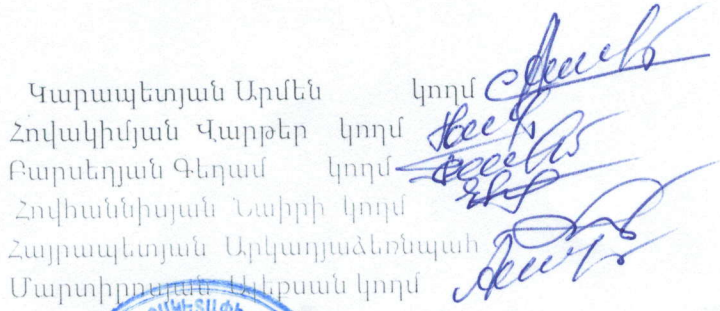 Կարապետյան Արմեն կողմ
Հովակիմյան Վարթեր կողմ
Բարսեղյան Գեղամ կողմ
Հովհաննիսյան Նաիրի կողմ
Հայրապետյան Արկադյա ձեռնպահ
Մարտիրոսյան Ալեքսան կողմ